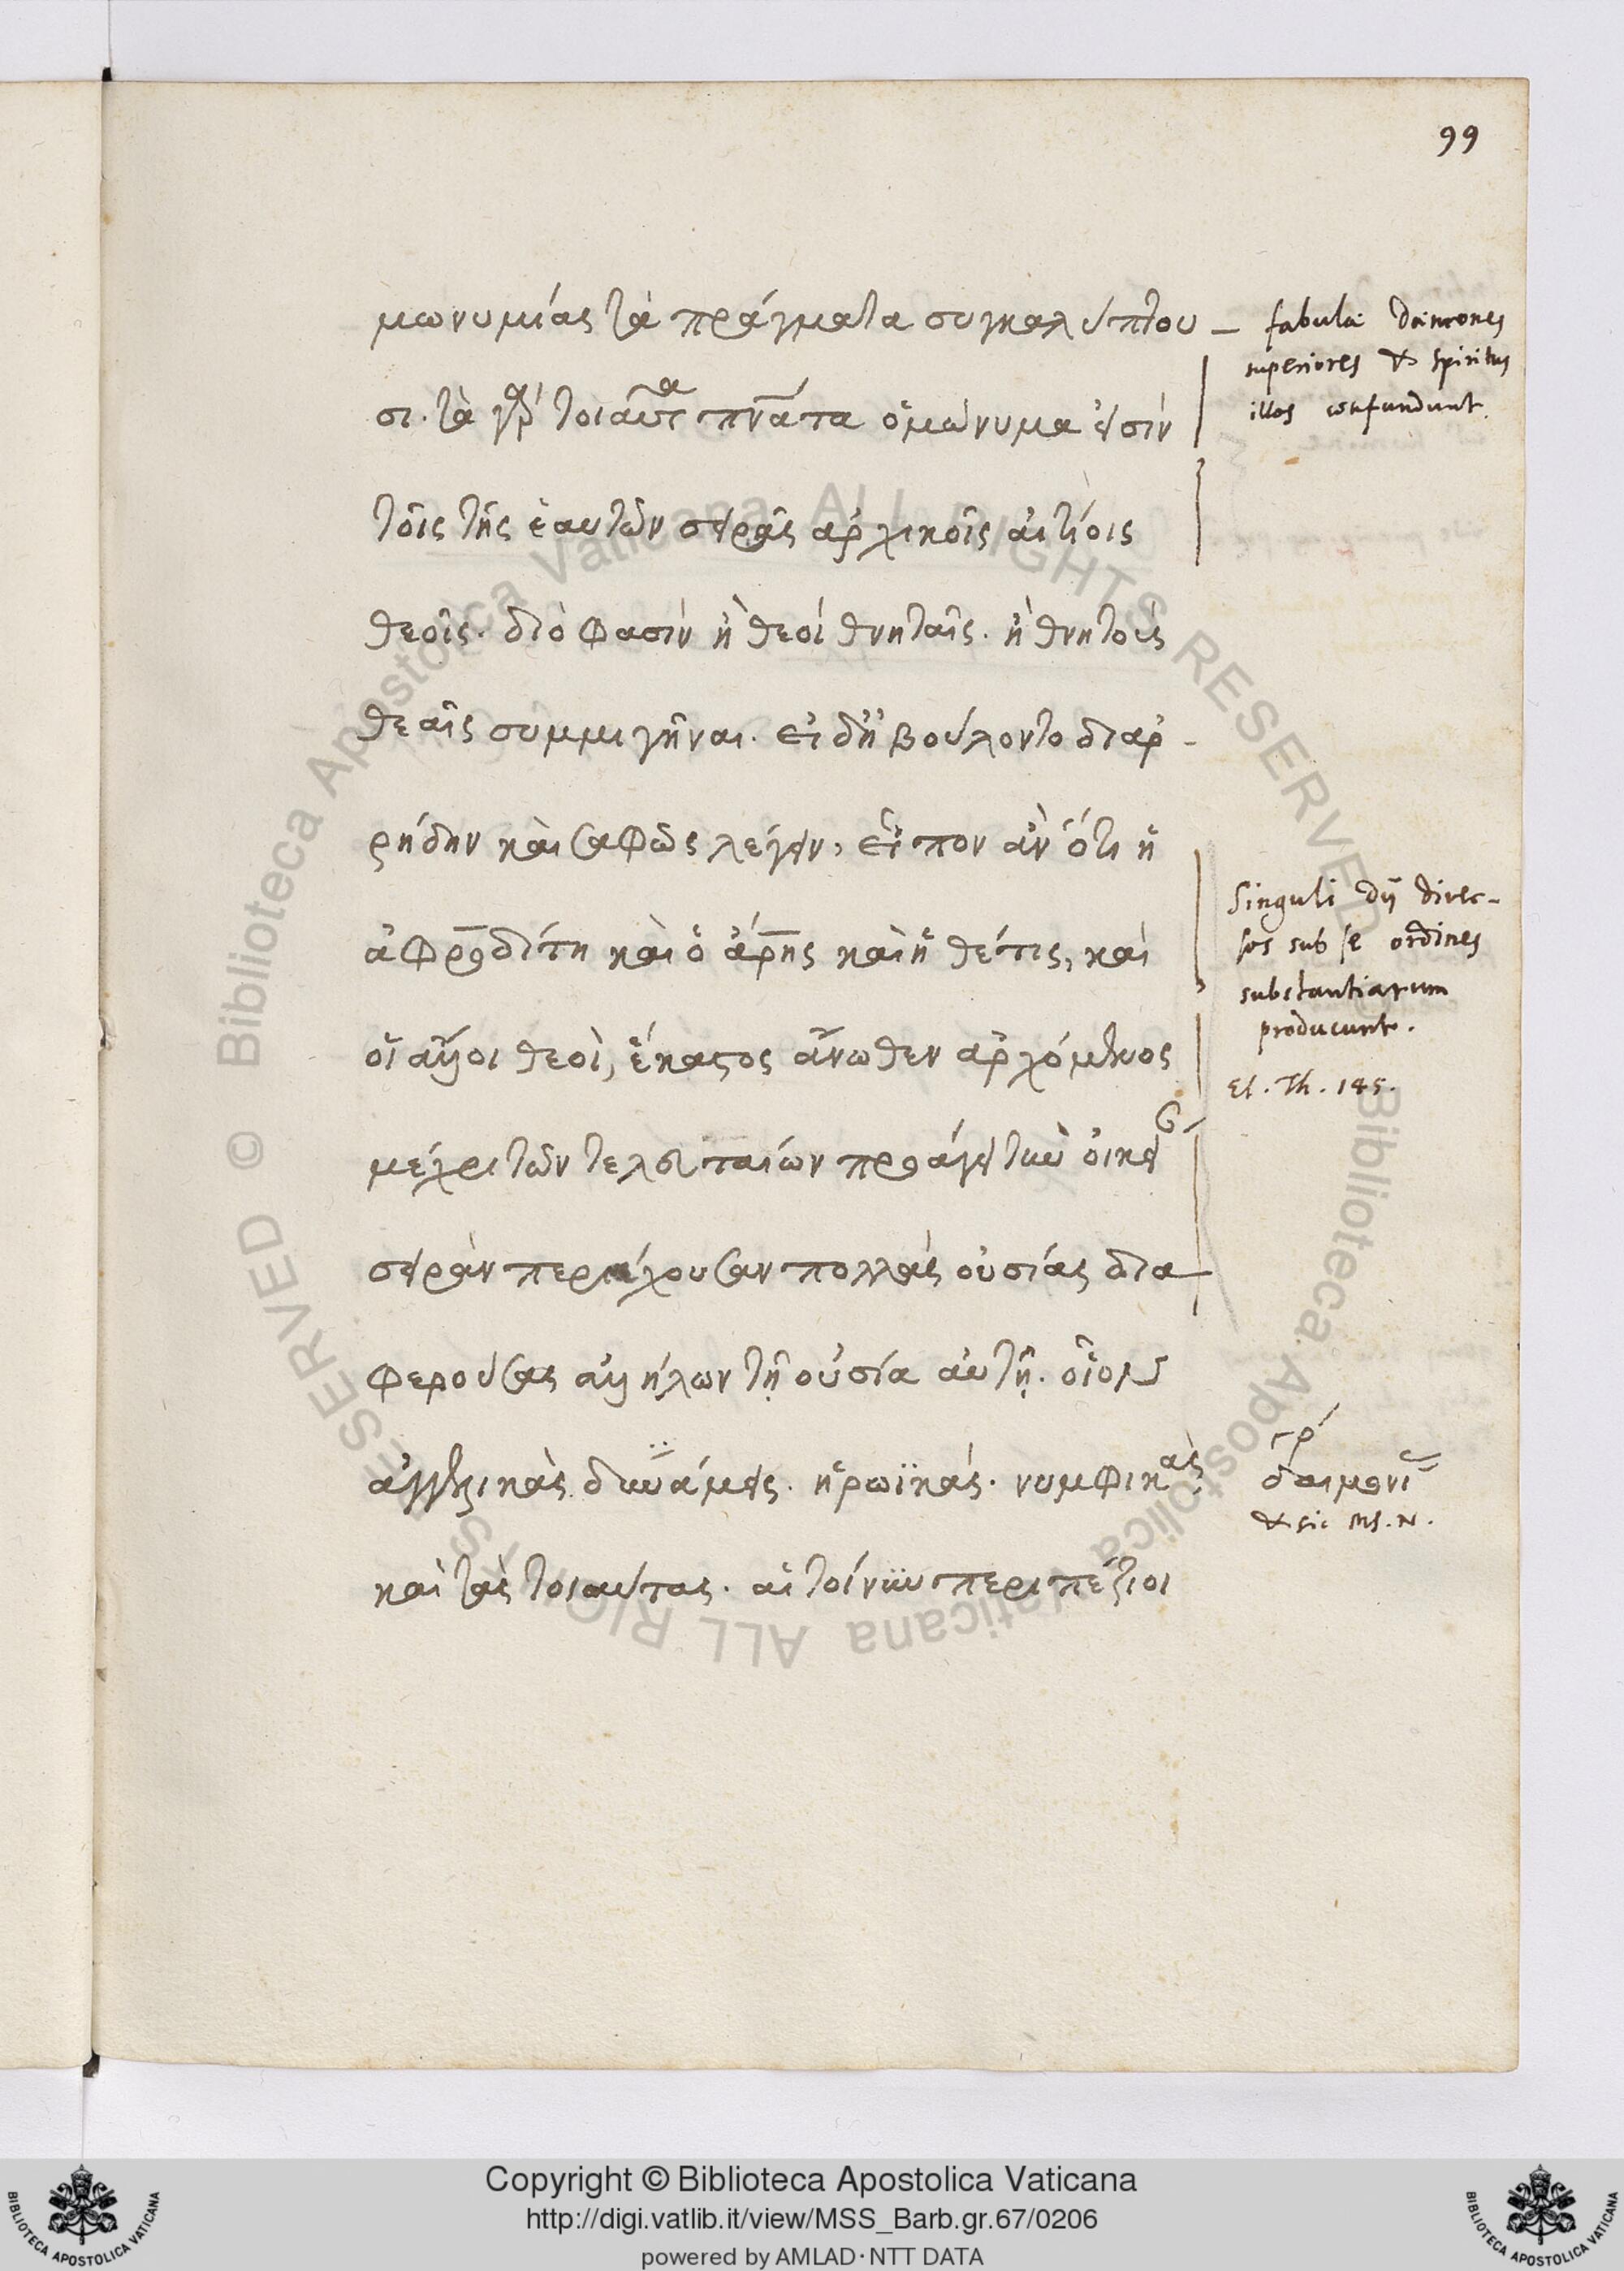 99
μωνυμίας τὰ πράγματα συγκαλύπτου -
σι. τὰ γὰρ τοιαῦτα πνᾶτα ὁμώνυμα ἐισὶν
τοῖς τῆς ἑαυτῶν σειρᾶς ἀρχικοῖς αἰτίοις
θεοῖς. διὸ φασὶν ἢ θεοὶ θνηταῖς. ἢ θνητοὺς
θεαῖς συμμιγῆναι. εἰ δὴ βούλοντο διαρ -
ρήδην καὶ σαφῶς λέγειν, εἶπον ἂν ὅτι ἡ
ἀφροδίτη καὶ ὁ ἄρης καὶ ἡ θέτις, καὶ
οἱ ἄλλοι θεοὶ, ἕκαστος ἄνωθεν ἀρχόμενος
μέχρι τῶν τελευταίων προάγει τὴν οἰκεί
σειρὰν περιέχουσαν πολλὰς οὐσίας δια -
φερούσας ἀλλήλων τῇ οὐσία αὐτῇ. οἷον
ἀγγελικὰς δυνάμεις. ἡρωϊκάς. νυμφικὰς
καὶ τὰς τοιαύτας. αἱ τοίνυν περιπέζιοι
fabulæ dæmones
superiores & spiritus
illos confundunt.
Singuli dÿ diver-
sos sub se ordines
substantiarum
producunt.
El. Th. 145.
γρ
δαιμονι
& sic MS. N.
Copyright © Biblioteca Apostolica Vaticana
http://digi.vatlib.it/view/MSS_Barb.gr.67/0206
powered by AMLAD·NTT DATA
BIBLIOTECA APOSTOLICA VATICANA
BIBLIOTECA APOSTOLICA VATICANA
Biblioteca Apostolica Vaticana ALL RIGHTS RESERVED
© Biblioteca Apostolica Vaticana ALL RIGHTS RESERVED